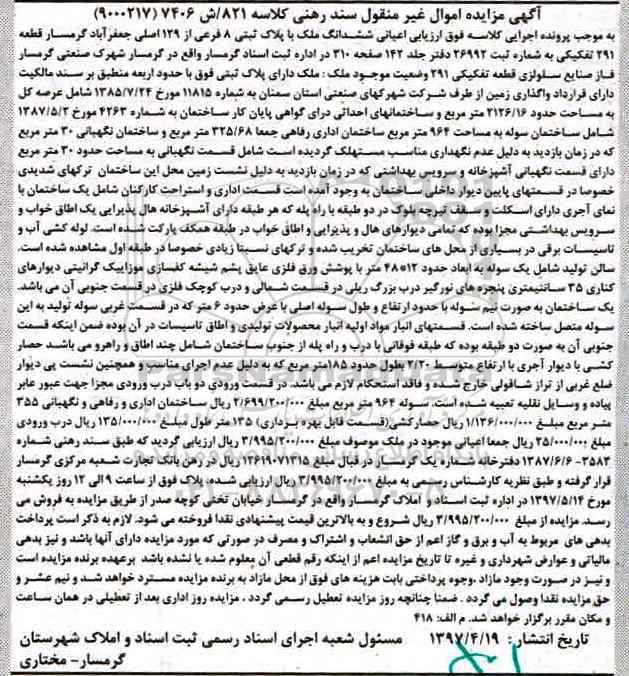 آگهی مزایده اموال غیر منقول سند رهنی کلاسه ۸۲۱/ش ۷۴۰۶ (۹۰۰۰۲۱۷)
به موجب پرونده اجرایی کلاسه فوق ارزیابی اعیانی ششدانگ ملک با پلاک ثبتی ۸ فرعی از ۱۲۹ اصلی جعفرآباد گرمسار قطعه
۲۹۱ تفکیکی به شماره ثبت ۲۶۹۹۲ دفتر جلد ۱۴۲ صفحه ۳۱۰ در اداره ثبت اسناد گرمسار واقع در گرمسار شهرک صنعتی گرمسار
فاز صنایع سلولزی قطعه تفکیکی ۲۹۱ وضعیت موجود ملک : ملک دارای پلاک ثبتی فوق با حدود اربعه منطبق بر سند مالکیت
دارای قرارداد واگذاری زمین از طرف شرکت شهرکهای صنعتی استان سمنان به شماره ۱۱۸۱۵ مورخ ۱۳۸۵/۷/۲۴ شامل عرصه کل
به مساحت حدود ۲۱۲۶/۱۶ متر مربع و ساختمانهای احداثی درای گواهی پایان کار ساختمان به شماره ۴۲۶۳ مورخ ۱۳۸۷/۵/۲
شامل ساختمان سوله به مساحت ۹۶۴ متر مربع ساختمان اداری رفاهی جمعا ۳۲۵/۶۸ متر مربع و ساختمان نگهبانی ۳۰ متر مربع
که در زمان بازدید به دلیل عدم نگهداری مناسب مستهلک گردیده است شامل قسمت نگهبانی به مساحت حدود ۳۰ متر مربع
دارای قسمت نگهبانی آشپزخانه و سرویس بهداشتی که در زمان بازدید به دلیل نشست زمین محل این ساختمان ترکهای شدیدی
خصوصا در قسمتهای پایین دیوار داخلی ساختمان به وجود آمده است قسمت اداری و استراحت کارکنان شامل یک ساختمان با
نمای آجری دارای اسکلت و سقف تیرچه بلوک در دو طبقه با راه پله که هر طبقه دارای آشپزخانه هال پذیرایی یک اطاق خواب و
سرویس بهداشتی مجزا بوده که تمامی دیوارهای هال و پذیرایی و اطاق خواب در طبقه همکف پارکت شده است. لوله کشی آب و
تاسیسات برقی در بسیاری از محل های ساختمان تخریب شده و ترکهای نسبتا زیادی خصوصا در طبقه اول مشاهده شده است.
سالن تولید شامل یک سوله به ابعاد حدود ۱۲*۴۸ متر با پوشش ورق فلزی عایق پشم شیشه کفسازی موزاییک گرانیتی دیوارهای
کناری ۳۵ سانتیمتری پنجره های نورگیر درب بزرگ ریلی در قسمت شمالی و درب کوچک فلزی در قسمت جنوبی آن می باشد.
یک ساختمان به صورت نیم سوله با حدود ارتفاع و طول سوله اصلی با عرض حدود ۶ متر که در قسمت غربی سوله تولید به این
سوله متصل ساخته شده است. قسمتهای انبار مواد اولیه انبار محصولات تولیدی و اطاق تاسیسات در آن بوده ضمن اینکه قسمت
جنوبی آن به صورت دو طبقه بوده که طبقه فوقانی با درب و راه پله از جنوب ساختمان شامل چند اطاق و راهرو می باشد حصار
کشی با دیوار آجری با ارتفاع متوسط ۲/۲۰ بطول حدود ۱۸۵متر مربع که به دلیل عدم اجرای مناسب و همچنین نشست پی دیوار
ضلع غربی از تراز شاقولی خارج شده و فاقد استحکام لازم می باشد. در قسمت ورودی دو باب درب ورودی مجزا جهت عبور عابر
پیاده و وسایل نقلیه تعبیه شده است. سوله ۹۶۴ متر مربع مبلغ ۲/۶۹۹/۲۰۰/۰۰۰ ریال ساختمان اداری و رفاهی و نگهبانی ۳۵۵
متر مربع مبلغ ۱/۱۳۶/۰۰۰/۰۰۰ ریال حصارکشی(قسمت قابل بهره برداری) ۱۳۵ متر طول مبلغ ۱۳۵/۰۰۰/۰۰۰ ریال درب ورودی
مبلغ ۲۵/۰۰۰/۰۰۰ ریال جمعا اعیانی موجود در ملک موصوف مبلغ ۳/۹۹۵/۲۰۰/۰۰۰ ریال ارزیابی گردید که طبق سند رهنی شماره
۲۵۸۳- ۱۳۸۷/۶/۶ دفترخانه شماره یک گرمسار در قبال مبلغ ۱۳۶۱۹۰۷۱۳۱۵ ریال در رهن بانک تجارت شعبه مرکزی گرمسار
قرار گرفته و طبق نظریه کارشناس رسمی به مبلغ ۳/۹۹۵/۲۰۰/۰۰۰ ریال ارزیابی شده، پلاک فوق از ساعت ۹ الی ۱۲ روز یکشنبه
مورخ ۱۳۹۷/۵/۱۴ در اداره ثبت اسناد و املاک گرمسار واقع در گرمسار خیابان تختی کوچه صدر از طریق مزایده به فروش می
رسد. مزایده از مبلغ ۳/۹۹۵/۲۰۰/۰۰۰ ریال شروع و به بالاترین قیمت پیشنهادی نقدا فروخته می شود. لازم به ذکر است پرداخت
بدهی های مربوط به آب و برق و گاز اعم از حق انشعاب و اشتراک و مصرف در صورتی که مورد مزایده دارای آنها باشد و نیز بدهی
مالیاتی و عوارض شهرداری و غیره تا تاریخ مزایده اعم از اینکه رقم قطعی آن معلوم شده یا نشده باشد برعهده برنده مزایده است
و نیز در صورت وجود مازاد ،وجوه پرداختی بابت هزینه های فوق از محل مازاد به برنده مزایده مسترد خواهد شد و نیم عشر و
حق مزایده نقدا وصول می گردد . ضمنا چنانچه روز مزایده تعطیل رسمی گردد ، مزایده روز اداری بعد از تعطیلی در همان ساعت
و مکان مقرر برگزار خواهد شد. م الف: ۴۱۸
تاریخ انتشار: ۱۳۹۷/۴/۱۹ مسئول شعبه اجرای اسناد رسمی ثبت اسناد و املاک شهرستان
گرمسار- مختاری